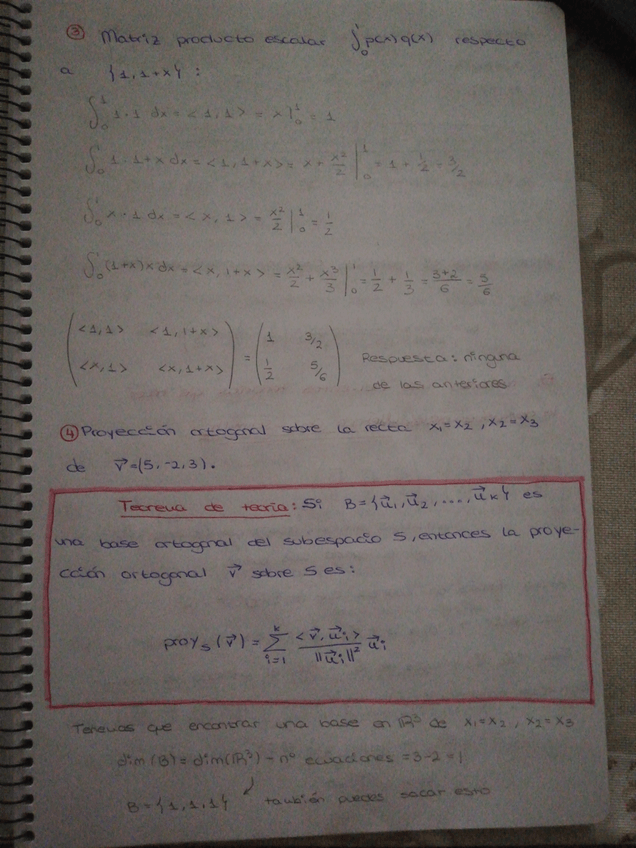 ③ Matriz producto escalar ∫₀¹ p(x)q(x) respecto
a {1, 1+x} :
∫₀¹ 1·1 dx = <1,1> = x|₀¹ = 1
∫₀¹ 1·1+x dx = <1, 1+x> = x + x²/2 |₀¹ = 1 + 1/2 = 3/2
∫₀¹ x·1 dx = <x, 1> = x²/2 |₀¹ = 1/2
∫₀¹ (1+x)x dx = <x, 1+x> = x²/2 + x³/3 |₀¹ = 1/2 + 1/3 = 3+2/6 = 5/6
(<1,1> <1,1+x>) = (1 3/2)
(<x,1> <x,1+x>) (1/2 5/6) Respuesta: ninguna
de las anteriores
④ Proyección ortogonal sobre la recta x₁=x₂, x₂=x₃
de v⃗=(5,-2,3).
Teorema de teoría: Si B={u⃗₁,u⃗₂,...,u⃗ₖ} es
una base ortogonal del subespacio S, entonces la proye-
cción ortogonal v⃗ sobre S es:
proyₛ(v⃗) = Σᵢ₌₁ᵏ <v⃗,u⃗ᵢ>/||u⃗ᵢ||² u⃗ᵢ
Tenemos que encontrar una base en ℝ³ de x₁=x₂, x₂=x₃
dim(B) = dim(ℝ³) - nº ecuaciones = 3-2 = 1
B={1,1,1} también puedes sacar esto